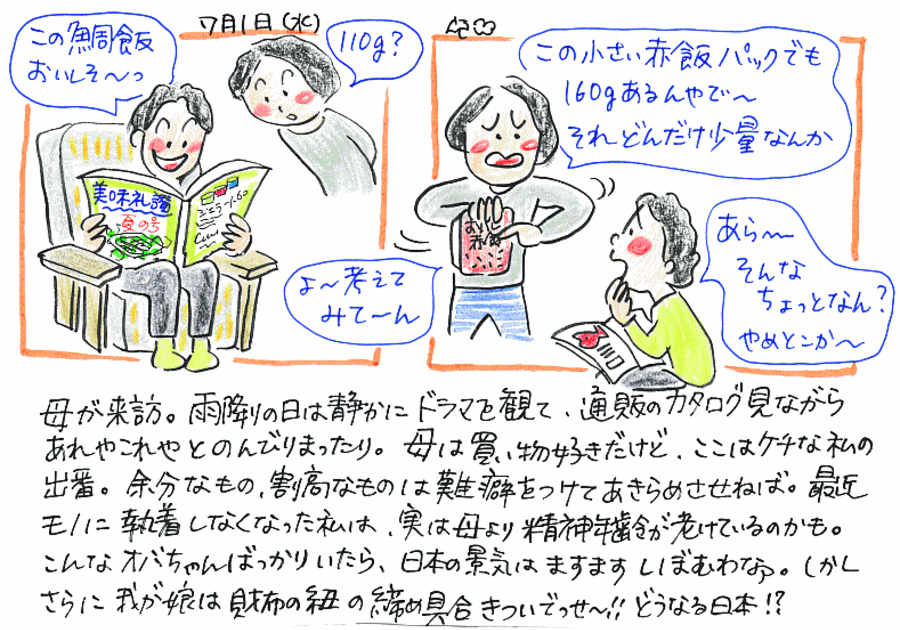 7月1日(水)
この鯛飯
おいしそ〜っ
110g?
美味礼讃
夏の号
この小さい赤飯パックでも
160gあるんやで〜
それどんだけ少量なんか
おいしい
赤飯
よ〜考えて
みて〜ん
あら〜
そんな
ちょっとなん?
やめとこか〜
母が来訪。雨降りの日は静かにドラマを観て、通販のカタログ見ながら
あれやこれやとのんびりまったり。母は買い物好きだけど、ここはケチな私の
出番。余分なもの、割高なものは難癖をつけてあきらめさせねば。最近
モノに執着しなくなった私は、実は母より精神年齢が老けているのかも。
こんなオバちゃんばっかりいたら、日本の景気はますますしぼむわなぁ。しかし
さらに我が娘は財布の紐の締め具合きついでっせ〜!!どうなる日本!?